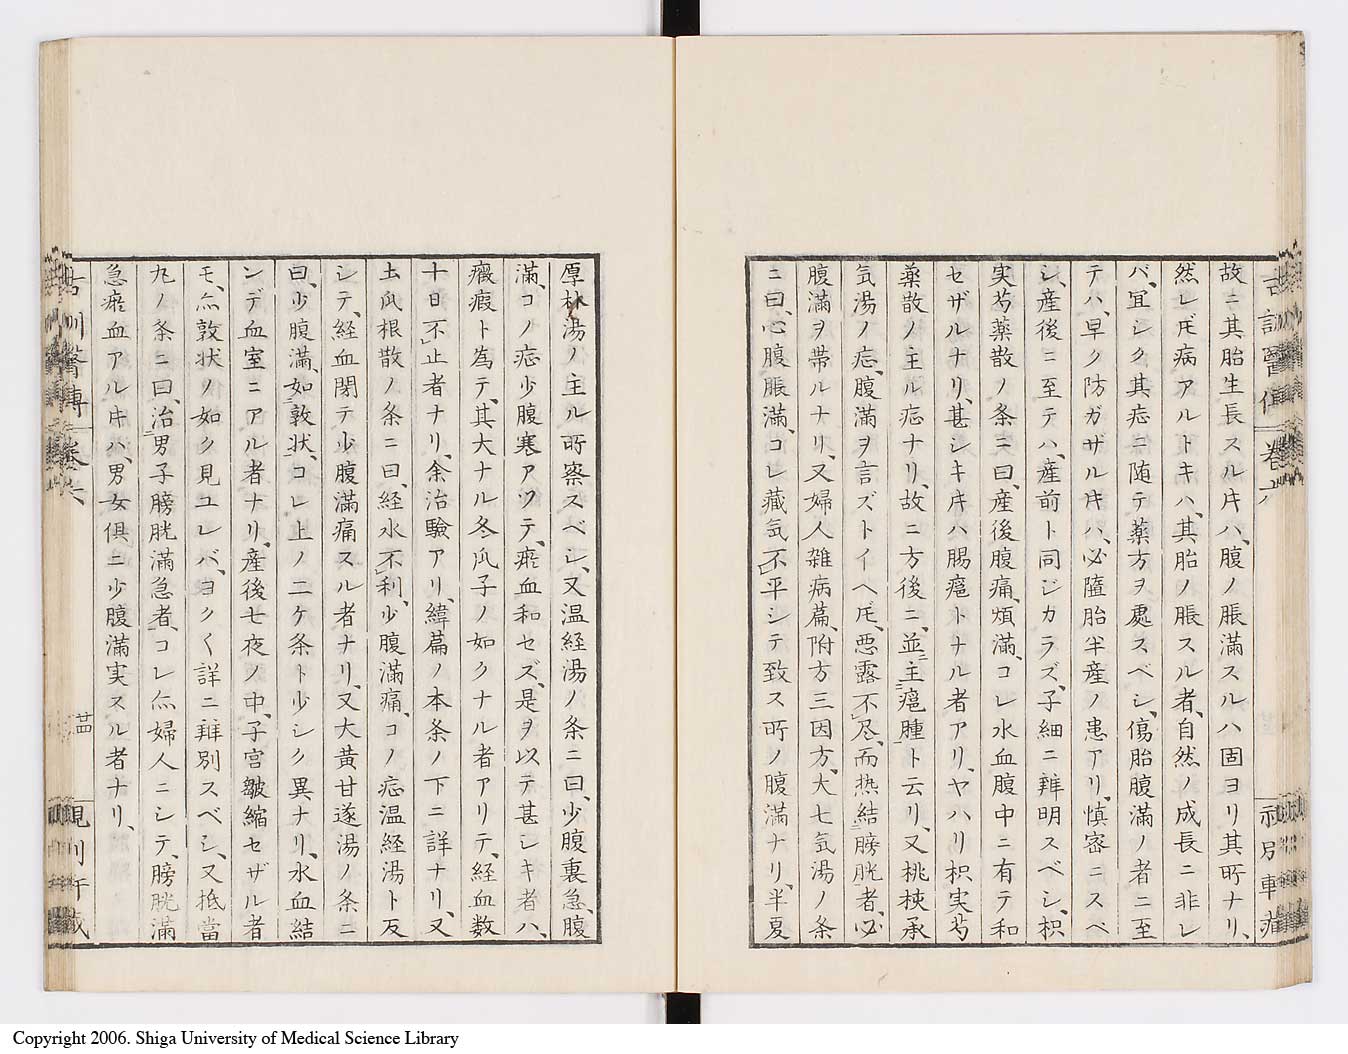 故ニ其胎生長スル𪜈ハ、腹ノ脹満スルハ固ヨリ其所ナリ、
然レ𪜈病アルトキハ、其胎ノ脹スル者、自然ノ成長ニ非レ
バ、冝シク其𤶊ニ随テ薬方ヲ處スベシ、傷胎腹滿ノ者ニ至
テハ、早ク防ガザル𪜈ハ、必墮胎半産ノ患アリ、慎密ニスベ
シ、産後ニ至テハ、産前ト同ジカラズ、子細ニ辨明スベシ、枳
実芍薬散ノ条ニ曰、産後腹痛、煩滿、コレ水血腹中ニ有テ和
セザルナリ、甚シキ𪜈ハ腸癰トナル者アリ、ヤハリ枳実芍
薬散ノ主ル𤶊ナリ、故ニ方後ニ、並主癰腫ト云リ、又桃核承
気湯ノ𤶊、腹滿ヲ言ズトイヘ𪜈、悪露不尽、而热結膀胱者、必
腹滿ヲ帯ルナリ、又婦人雑病篇、附方三因方、大七気湯ノ条
ニ曰、心腹脹滿、コレ藏気不平シテ致ス所ノ腹滿ナリ、半夏
厚朴湯ノ主ル所察スベシ、又温経湯ノ条ニ曰、少腹裏急、腹
滿、コノ𤶊少腹寒アツテ、瘀血和セズ、是ヲ以テ甚シキ者ハ、
癥瘕ト為テ、其大ナル冬瓜子ノ如クナル者アリテ、経血数
十日不止者ナリ、余治驗アリ、緯篇ノ本条ノ下ニ詳ナリ、又
土瓜根散ノ条ニ曰、経水不利、少腹滿痛、コノ𤶊温経湯ト反
シテ、経血閉テ少腹滿痛スル者ナリ、又大黄甘遂湯ノ条ニ
曰、少腹滿、如敦状、コレ上ノ二ケ条ト少シク異ナリ、水血結
ンデ血室ニアル者ナリ、産後七夜ノ中、子宮皺縮セザル者
モ、亦敦状ノ如ク見ユレバ、ヨクく詳ニ辨別スベシ、又抵當
丸ノ条ニ曰、治男子膀胱滿急者、コレ亦婦人ニシテ、膀胱滿
急瘀血アル𪜈ハ、男女倶ニ少腹滿実スル者ナリ、
廿四
Copyright 2006. Shiga University of Medical Science Library